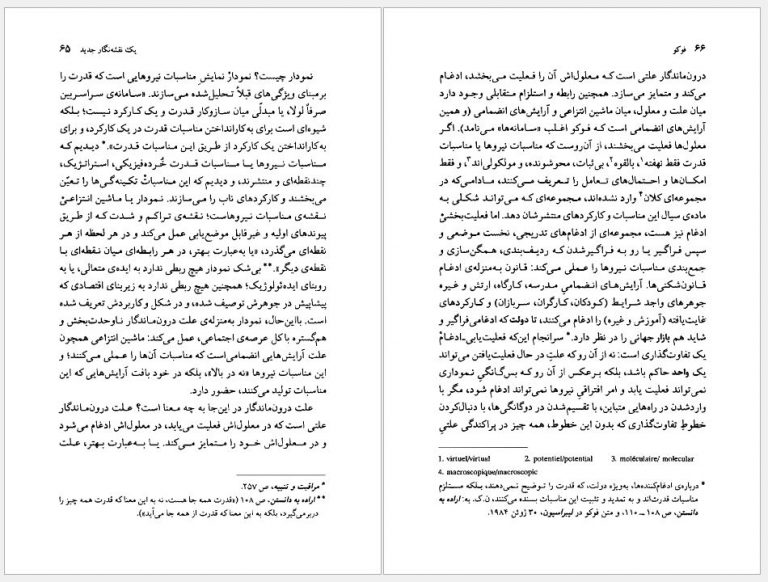 یک نقشه‌نگار جدید ۶۵
نمودار چیست؟ نمودارْ نمایشِ مناسبات نیروهایی است که قدرت را
برمبنای ویژگی‌های قبلاً تحلیل‌شده می‌سازند. «سامانه‌ی سراسربین
صرفاً لولا، یا مبدلّی میان سازوکار قدرت و یک کارکرد نیست؛ بلکه
شیوه‌ای است برای به‌کارانداختن مناسبات قدرت در یک کارکرد، و برای
به‌کارانداختن یک کارکرد از طریق این مناسبات قدرت».* دیدیم که
مناسبات نیروها یا مناسبات قدرت خُرده‌فیزیکی، استراتژیک،
چندنقطه‌ای و منتشرند، و دیدیم که این مناسباتْ تکینه‌گی‌ها را تعیّن
می‌بخشند و کارکردهای ناب را می‌سازند. نمودار یا ماشین انتزاعیْ
نقشه‌ی مناسبات نیروهاست؛ نقشه‌ی تراکم و شدت که از طریق
پیوندهای اولیه و غیرقابل موضع‌یابی عمل می‌کند و در هر لحظه از هر
نقطه‌ای می‌گذرد، «یا به‌عبارت بهتر، در هر رابطه‌ای میان نقطه‌ای با
نقطه‌ی دیگر».** بی‌شک نمودار هیچ ربطی ندارد به ایده‌ی متعالی، یا به
روبنای ایده‌ئولوژیک؛ همچنین هیچ ربطی ندارد به زیربنای اقتصادی که
پیشاپیش در جوهرش توصیف شده، و در شکل و کاربردش تعریف شده
است. بااین‌حال، نمودار به‌منزله‌ی علت درون‌ماندگار ناوحدت‌بخش و
هم‌گستره با کل عرصه‌ی اجتماعی، عمل می‌کند: ماشین انتزاعی همچون
علت آرایش‌هایی انضمامی است که مناسبات آن‌ها را عملی می‌کنند؛ و
این مناسبات نیروها «نه در بالا»، بلکه در خود بافت آرایش‌هایی که این
مناسبات تولید می‌کنند، حضور دارد.
علت درون‌ماندگار در این‌جا به چه معنا است؟ علت درون‌ماندگار
علتی است که در معلول‌اش فعلیت می‌یابد، در معلول‌اش ادغام می‌شود
و در معلول‌اش خود را متمایز می‌کند. یا به‌عبارت بهتر، علت
* مراقبت و تنبیه، ص ۲۵۷.
** اراده به دانستن، ص ۱۰۸ («قدرت همه جا هست، نه به این معنا که قدرت همه چیز را
دربرمی‌گیرد، بلکه به این معنا که قدرت از همه جا می‌آید»).
۶۶ فوکو
درون‌ماندگار علتی است که معلول‌اش آن را فعلیت می‌بخشد، ادغام
می‌کند و متمایز می‌سازد. همچنین رابطه و استلزام متقابلی وجود دارد
میان علت و معلول، میان ماشین انتزاعی و آرایش‌های انضمامی (و همین
آرایش‌های انضمامی است که فوکو اغلب «سامانه‌ها» می‌نامد). اگر
معلول‌ها فعلیت می‌بخشند، از آن‌روست که مناسبات نیروها یا مناسبات
قدرت فقط نهفته۱، بالقوه۲، بی‌ثبات، محوشونده، و مولکولی‌اند۳، و فقط
امکان‌ها و احتمال‌های تعامل را تعریف می‌کنند، مادامی‌که در
مجموعه‌ای کلان۴ وارد نشده‌اند، مجموعه‌ای که می‌تواند شکلی به
ماده‌ی سیال این مناسبات و کارکردهای منتشرشان دهد. اما فعلیت‌بخشیْ
ادغام نیز هست، مجموعه‌ای از ادغام‌های تدریجی، نخست موضعی و
سپس فراگیر یا رو به فراگیرشدن که ردیف‌بندی، همگن‌سازی و
جمع‌بندی مناسبات نیروها را عملی می‌کند: قانون به‌منزله‌ی ادغام
قانون‌شکنی‌ها. آرایش‌های انضمامیِ مدرسه، کارگاه، ارتش و غیره
جوهرهای واجد شرایط (کودکان، کارگران، سربازان) و کارکردهای
غایت‌یافته (آموزش و غیره) را ادغام می‌کنند، تا دولت که ادغامی فراگیر و
شاید هم بازار جهانی را در نظر دارد.* سرانجام این‌که فعلیت‌یابی-ادغامْ
یک تفاوت‌گذاری است: نه از آن رو که علتِ در حال فعلیت‌یافتن می‌تواند
یک واحد حاکم باشد، بلکه برعکس از آن رو که بس‌گانگیِ نموداری
نمی‌تواند فعلیت یابد و امر افتراقیِ نیروها نمی‌تواند ادغام شود، مگر با
واردشدن در راه‌هایی متباین، با تقسیم‌شدن در دوگانگی‌ها، با دنبال‌کردن
خطوط تفاوت‌گذاری که بدون این خطوط، همه چیز در پراکندگی علتیِ
1. virtuel/virtual 2. potentiel/potential 3. moléculaire/ molecular
4. macroscopique/macroscopic
* درباره‌ی ادغام‌کننده‌ها، به‌ویژه دولت، که قدرت را توضیح نمی‌دهند، بلکه مستلزم
مناسبات قدرت‌اند و به تمدید و تثبیت این مناسبات بسنده می‌کنند، ن.ک. به: اراده به
دانستن، ص ۱۰۸ــ۱۱۰، و متن فوکو در لیبراسیون، ۳۰ ژوئن ۱۹۸۴.